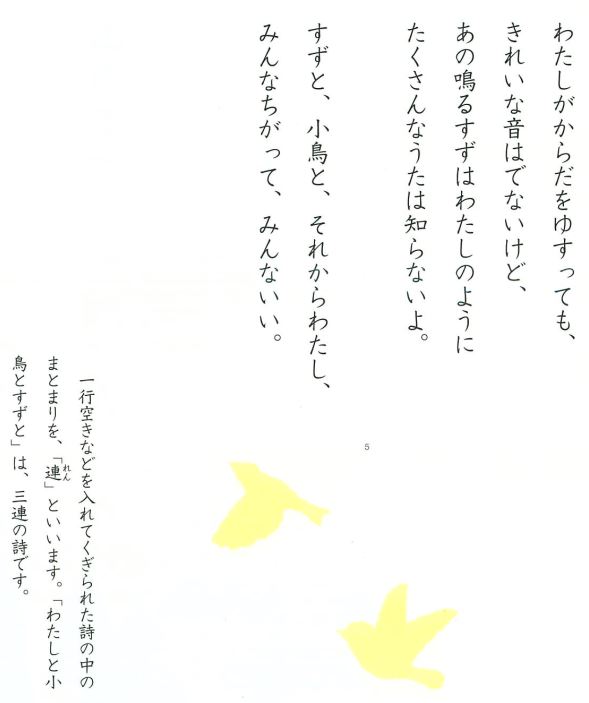 わたしがからだをゆすっても、
きれいな音はでないけど、
あの鳴るすずはわたしのように
たくさんなうたは知らないよ。
すずと、小鳥と、それからわたし、
みんなちがって、みんないい。
5
一行空きなどを入れてくぎられた詩の中の
まとまりを、「連」といいます。「わたしと小
れん
鳥とすずと」は、三連の詩です。